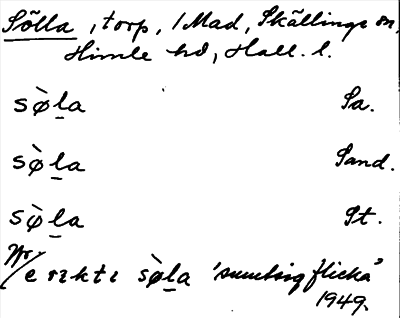 Sölla, torp, /Mad, Skällinge sn,
Himle hd, Hall. l.
sø̀la Sa.
sø̀la Sand.
sø̀la St.
e rikti sø̀la 'smutsig flicka'
1949.